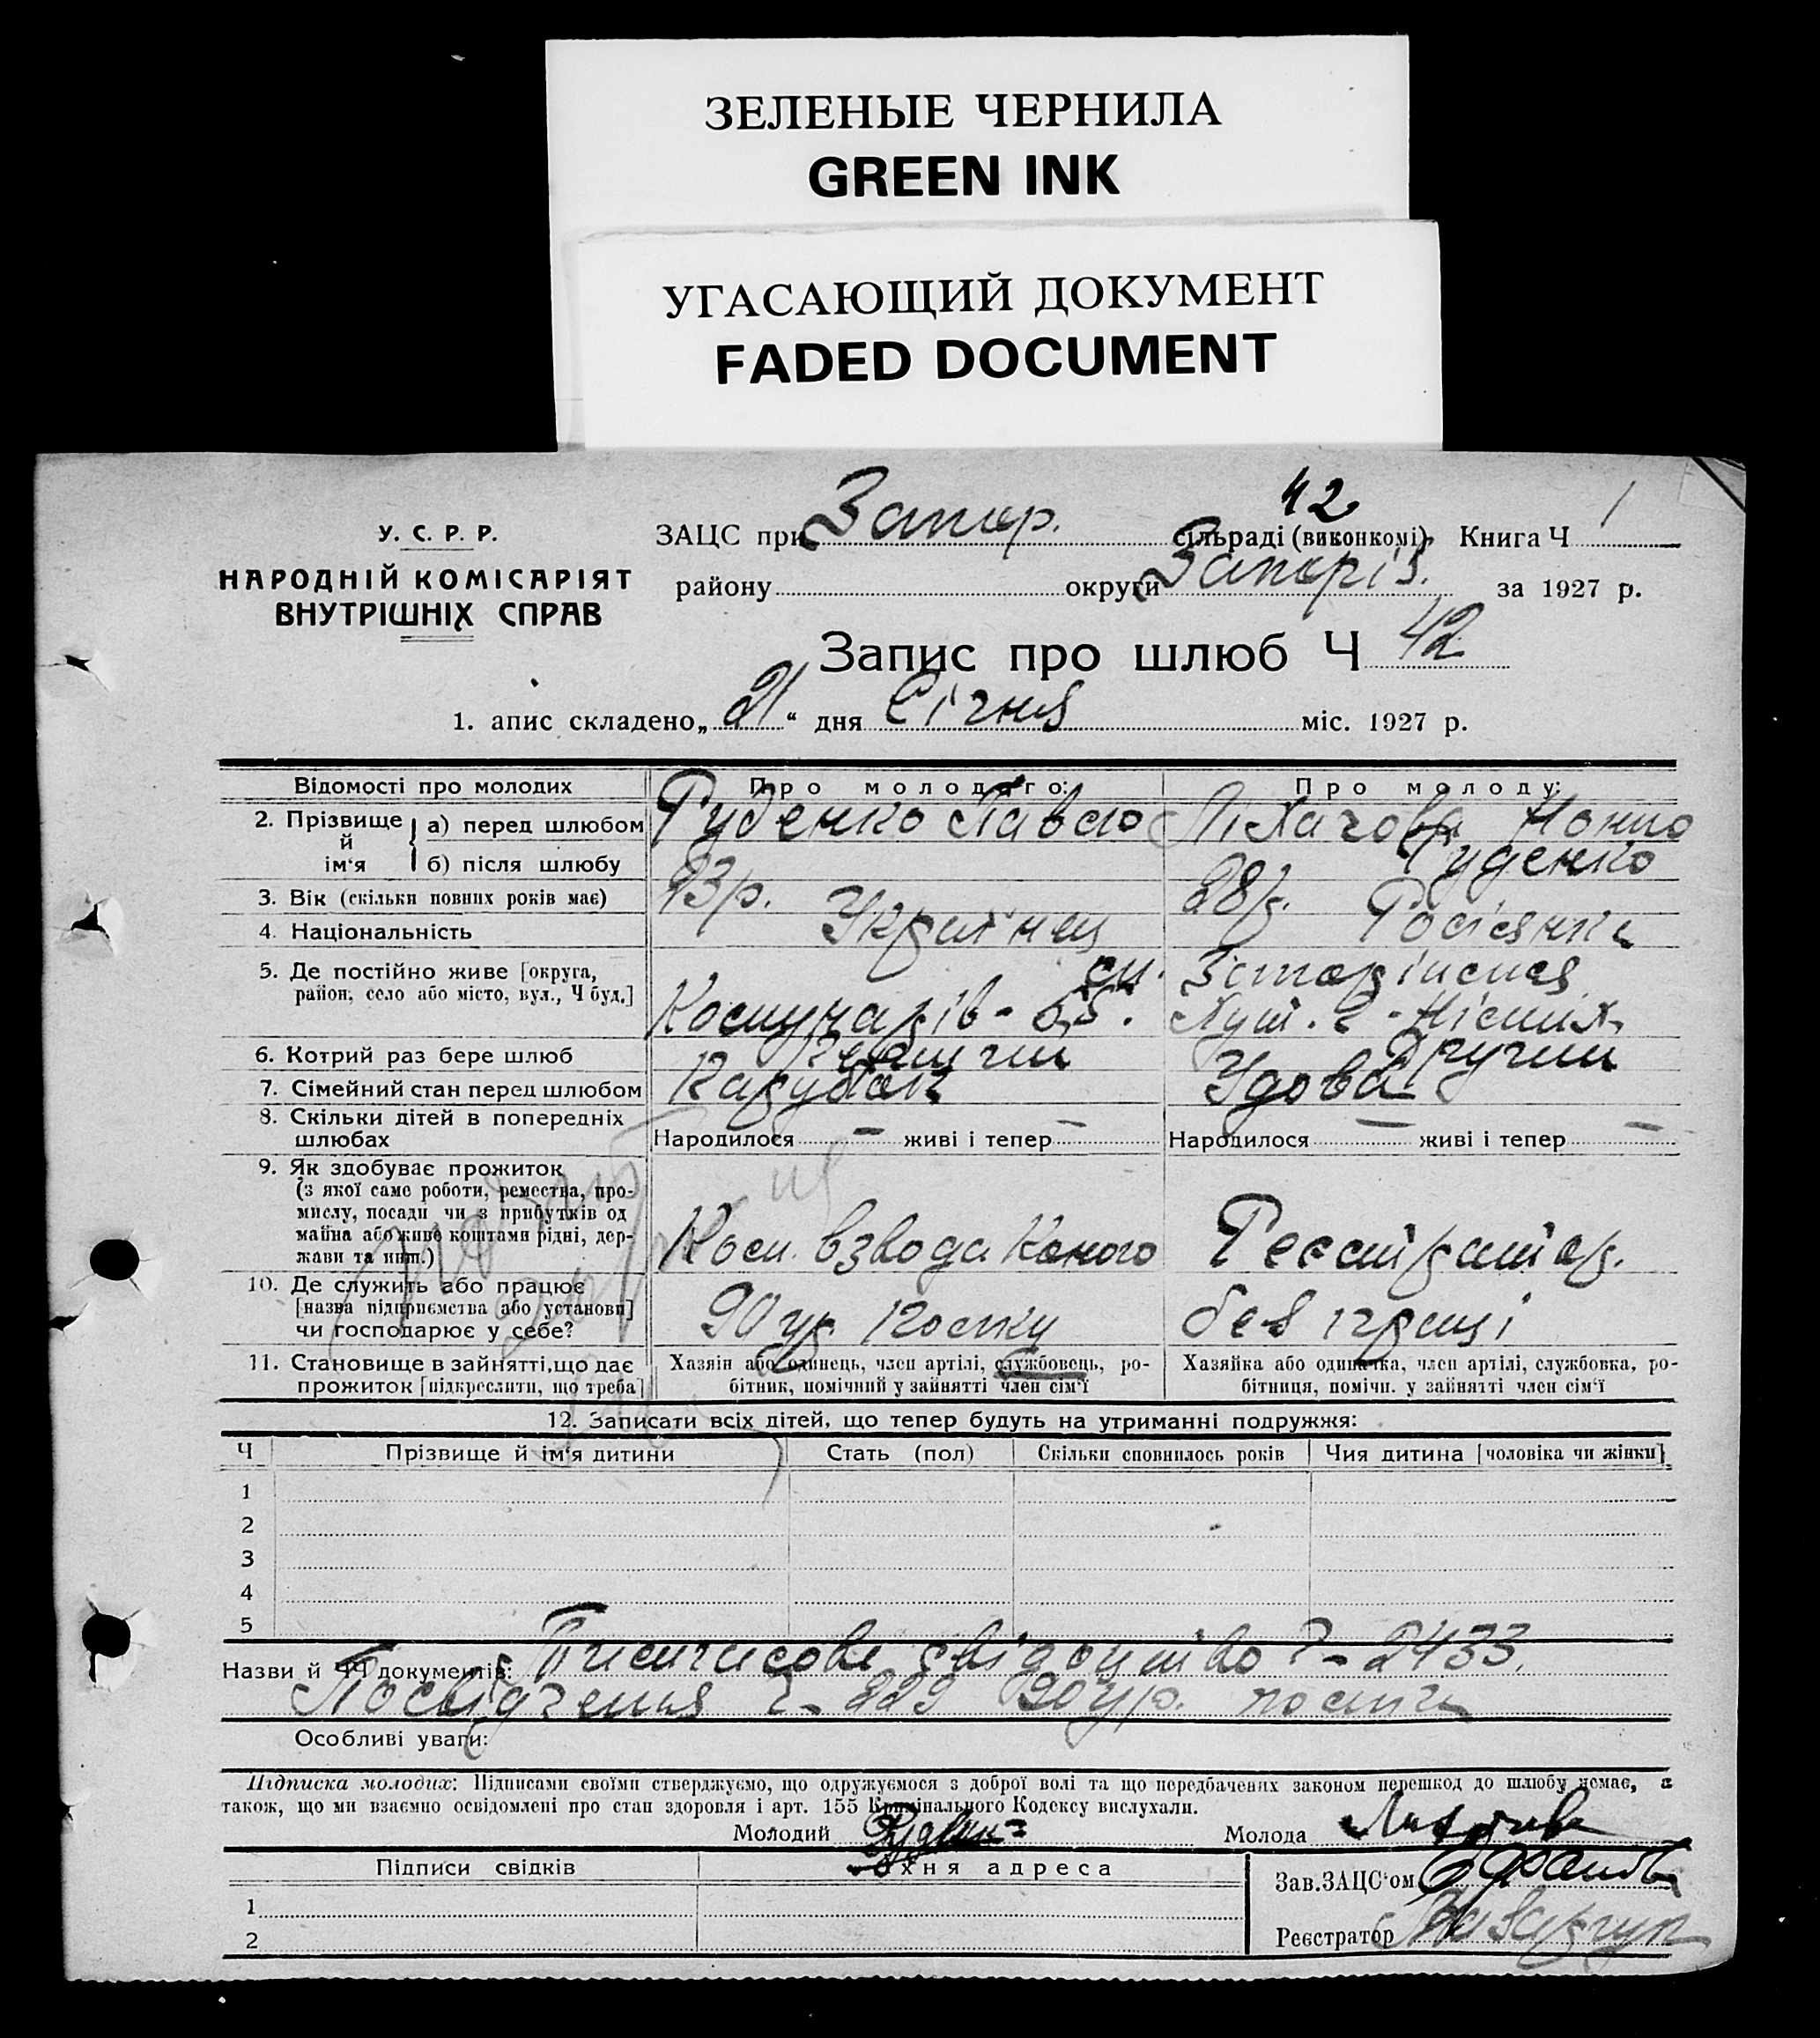 ЗЕЛЕНЫЕ ЧЕРНИЛА
GREEN INK
УГАСАЮЩИЙ ДОКУМЕНТ
FADED DOCUMENT
У. С. Р. Р.
НАРОДНІЙ КОМІСАРІЯТ
ВНУТРІШНІХ СПРАВ
42
ЗАЦС при Запор. сільраді (виконкомі). Книга Ч 1
району округи Запоріз. за 1927 р.
Запис про шлюб Ч 42
1. апис складено „21“ дня Січня міс. 1927 р.
Відомості про молодих Про молодого: Про молоду:
2. Прізвище й ім‘я
а) перед шлюбом Руденко Павло Ліхачова
б) після шлюбу Руденко
3. Вік (скільки повних років має) 23р. 28р.
4. Національність Українец Росіянка
5. Де постійно живе [округа,
район, село або місто, вул., Ч буд.]
Комунарів - 55.
6. Котрий раз бере шлюб Перший Другий
7. Сімейний стан перед шлюбом Парубок Удова
8. Скільки дітей в попередніх
шлюбах
Народилося — живі і тепер — Народилося — живі і тепер —
9. Як здобуває прожиток
(з якої саме роботи, ремества, про-
мислу, посади чи з прибутків од
майна або живе коштами рідні, дер-
жави та инш.)
Ком. взвода Коного Реєстратор.
10. Де служить або працює
[назва підприємства або установи]
чи господарює у себе?
90 ур. полку без праці
11. Становище в зайнятті, що дає
прожиток [підкреслити, що треба]
Хазяїн або одинець, член артілі, службовець, ро-
бітник, помічний у зайнятті член сім‘ї
Хазяйка або одиначка, член артілі, службовка, ро-
бітниця, помічн. у зайнятті член сім‘ї
12. Записати всіх дітей, що тепер будуть на утриманні подружжя:
Ч Прізвище й ім‘я дитини Стать (пол) Скільки сповнилось років Чия дитина [чоловіка чи жінки]
1
2
3
4
5
Назви й ЧЧ документів: свідоцтво 2433.
Посвідчення Ч- 229 90 ур. полка
Особливі уваги:
Підписка молодих: Підписами своїми стверджуємо, що одружуємося з доброї волі та що передбачених законом перешкод до шлюбу немає, а
також, що ми взаємно освідомлені про стан здоровля і арт. 155 Кримінального Кодексу вислухали.
Молодий Молода
Підписи свідків Їхня адреса
Зав.ЗАЦС‘ом
1
2
Реєстратор